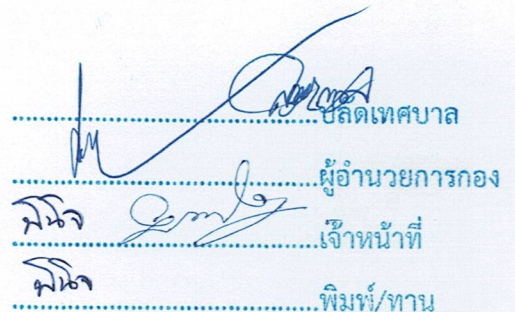 ....................ปลัดเทศบาล
....................ผู้อำนวยการกอง
พินิจ ....................เจ้าหน้าที่
พินิจ ....................พิมพ์/ทาน